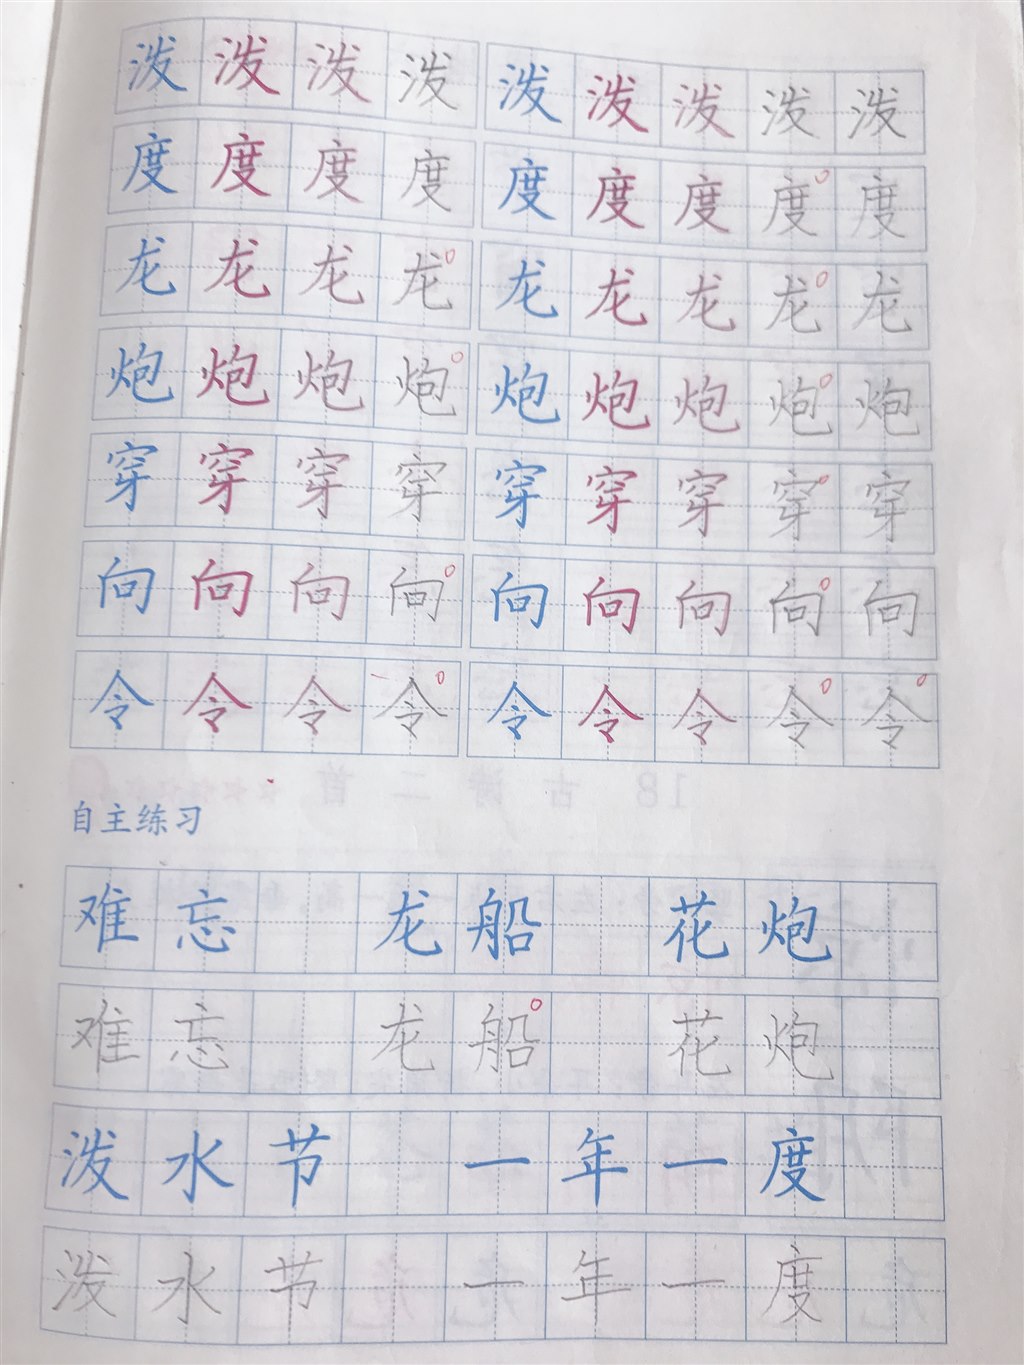 泼泼泼泼泼泼泼泼泼
度度度度度度度度度
龙龙龙龙龙龙龙龙龙
炮炮炮炮炮炮炮炮炮
穿穿穿穿穿穿穿穿穿
向向向向向向向向向
令令令令令令令令令
自主练习
难忘 龙船 花炮
难忘 龙船 花炮
泼水节 一年一度
泼水节 一年一度